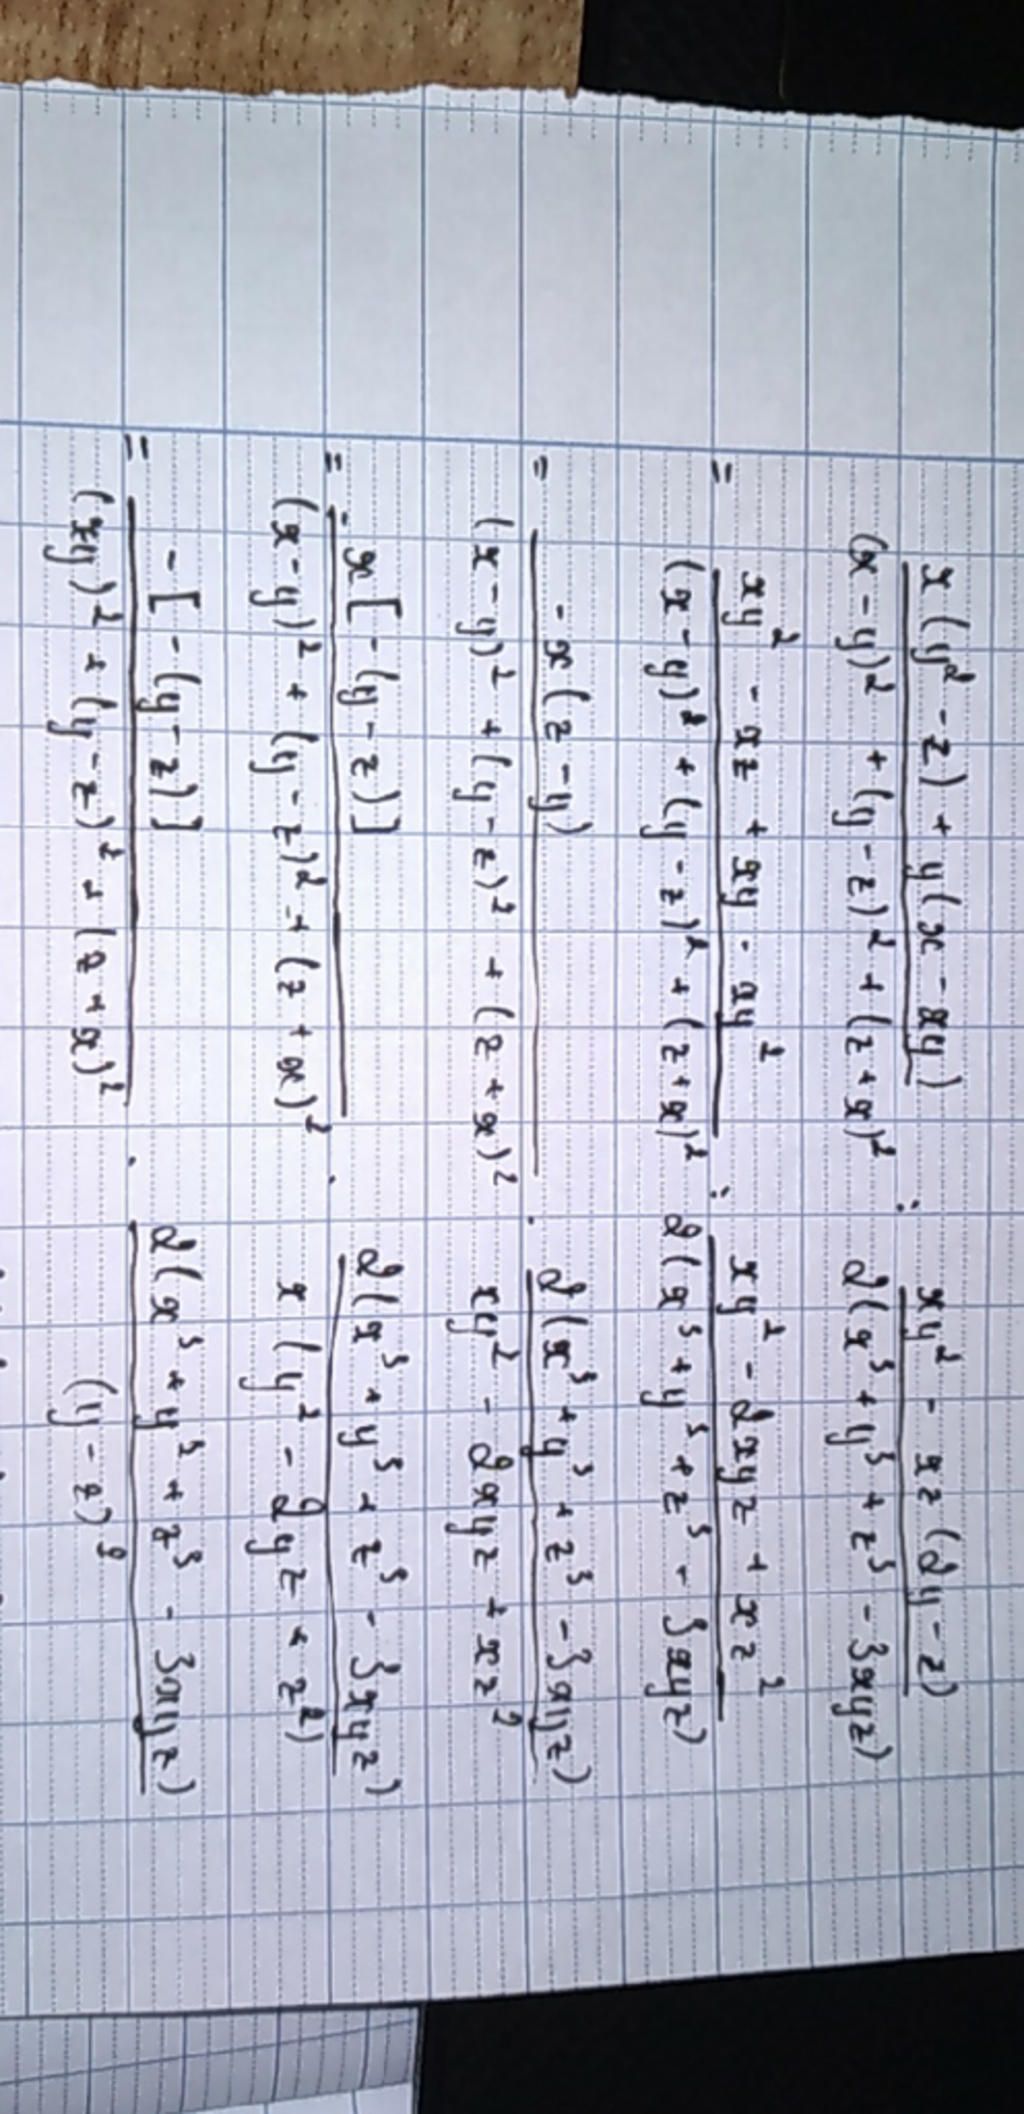 x(y² - z) + y(x - xy) / (x - y)² + (y - z)² + (z + x)² : xy² - xz(2y - z) / 2(x³ + y³ + z³ - 3xyz)
= xy² - xz + xy - xy² / (x - y)² + (y - z)² + (z + x)² : xy² - 2xyz + xz² / 2(x³ + y³ + z³ - 3xyz)
= -x(z - y) / (x - y)² + (y - z)² + (z + x)² . 2(x³ + y³ + z³ - 3xyz) / xy² - 2xyz + xz²
= -x[-(y - z)] / (x - y)² + (y - z)² + (z + x)² . 2(x³ + y³ + z³ - 3xyz) / x(y² - 2yz + z²)
= -[-(y - z)] / (xy)² + (y - z)² + (z + x)² . 2(x³ + y³ + z³ - 3xyz) / (y - z)²